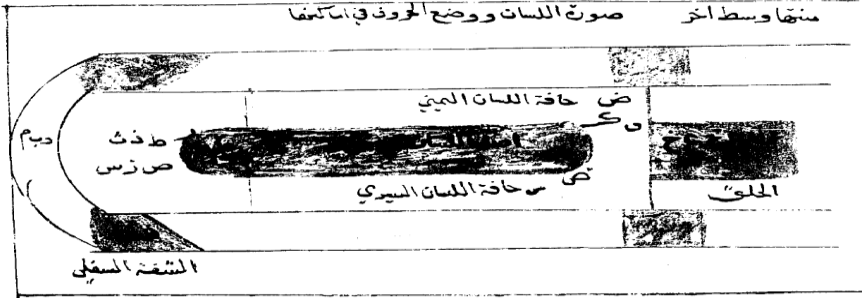 منها وسط اخر
صورة اللسان ووضع الحروف في اماكنها
ض حافة اللسان اليمني
ق ك
وب م
ظ ذ ث
ص ز س
ض
حافة اللسان اليسرى
الحلق
الشفة السفلى